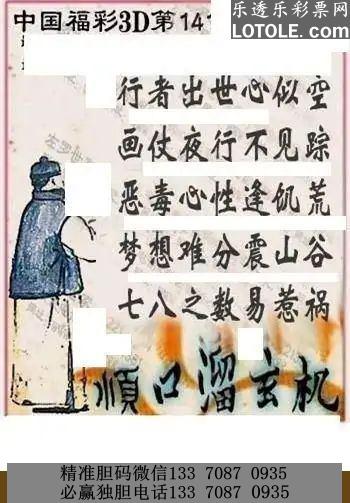 中国福彩3D第141
乐透乐彩票网
LOTOLE.COM
行者出世心似空
画仗夜行不见踪
恶毒心性逢饥荒
梦想难分震山谷
七八之数易惹祸
顺口溜玄机
精准胆码微信133 7087 0935
必赢独胆电话133 7087 0935